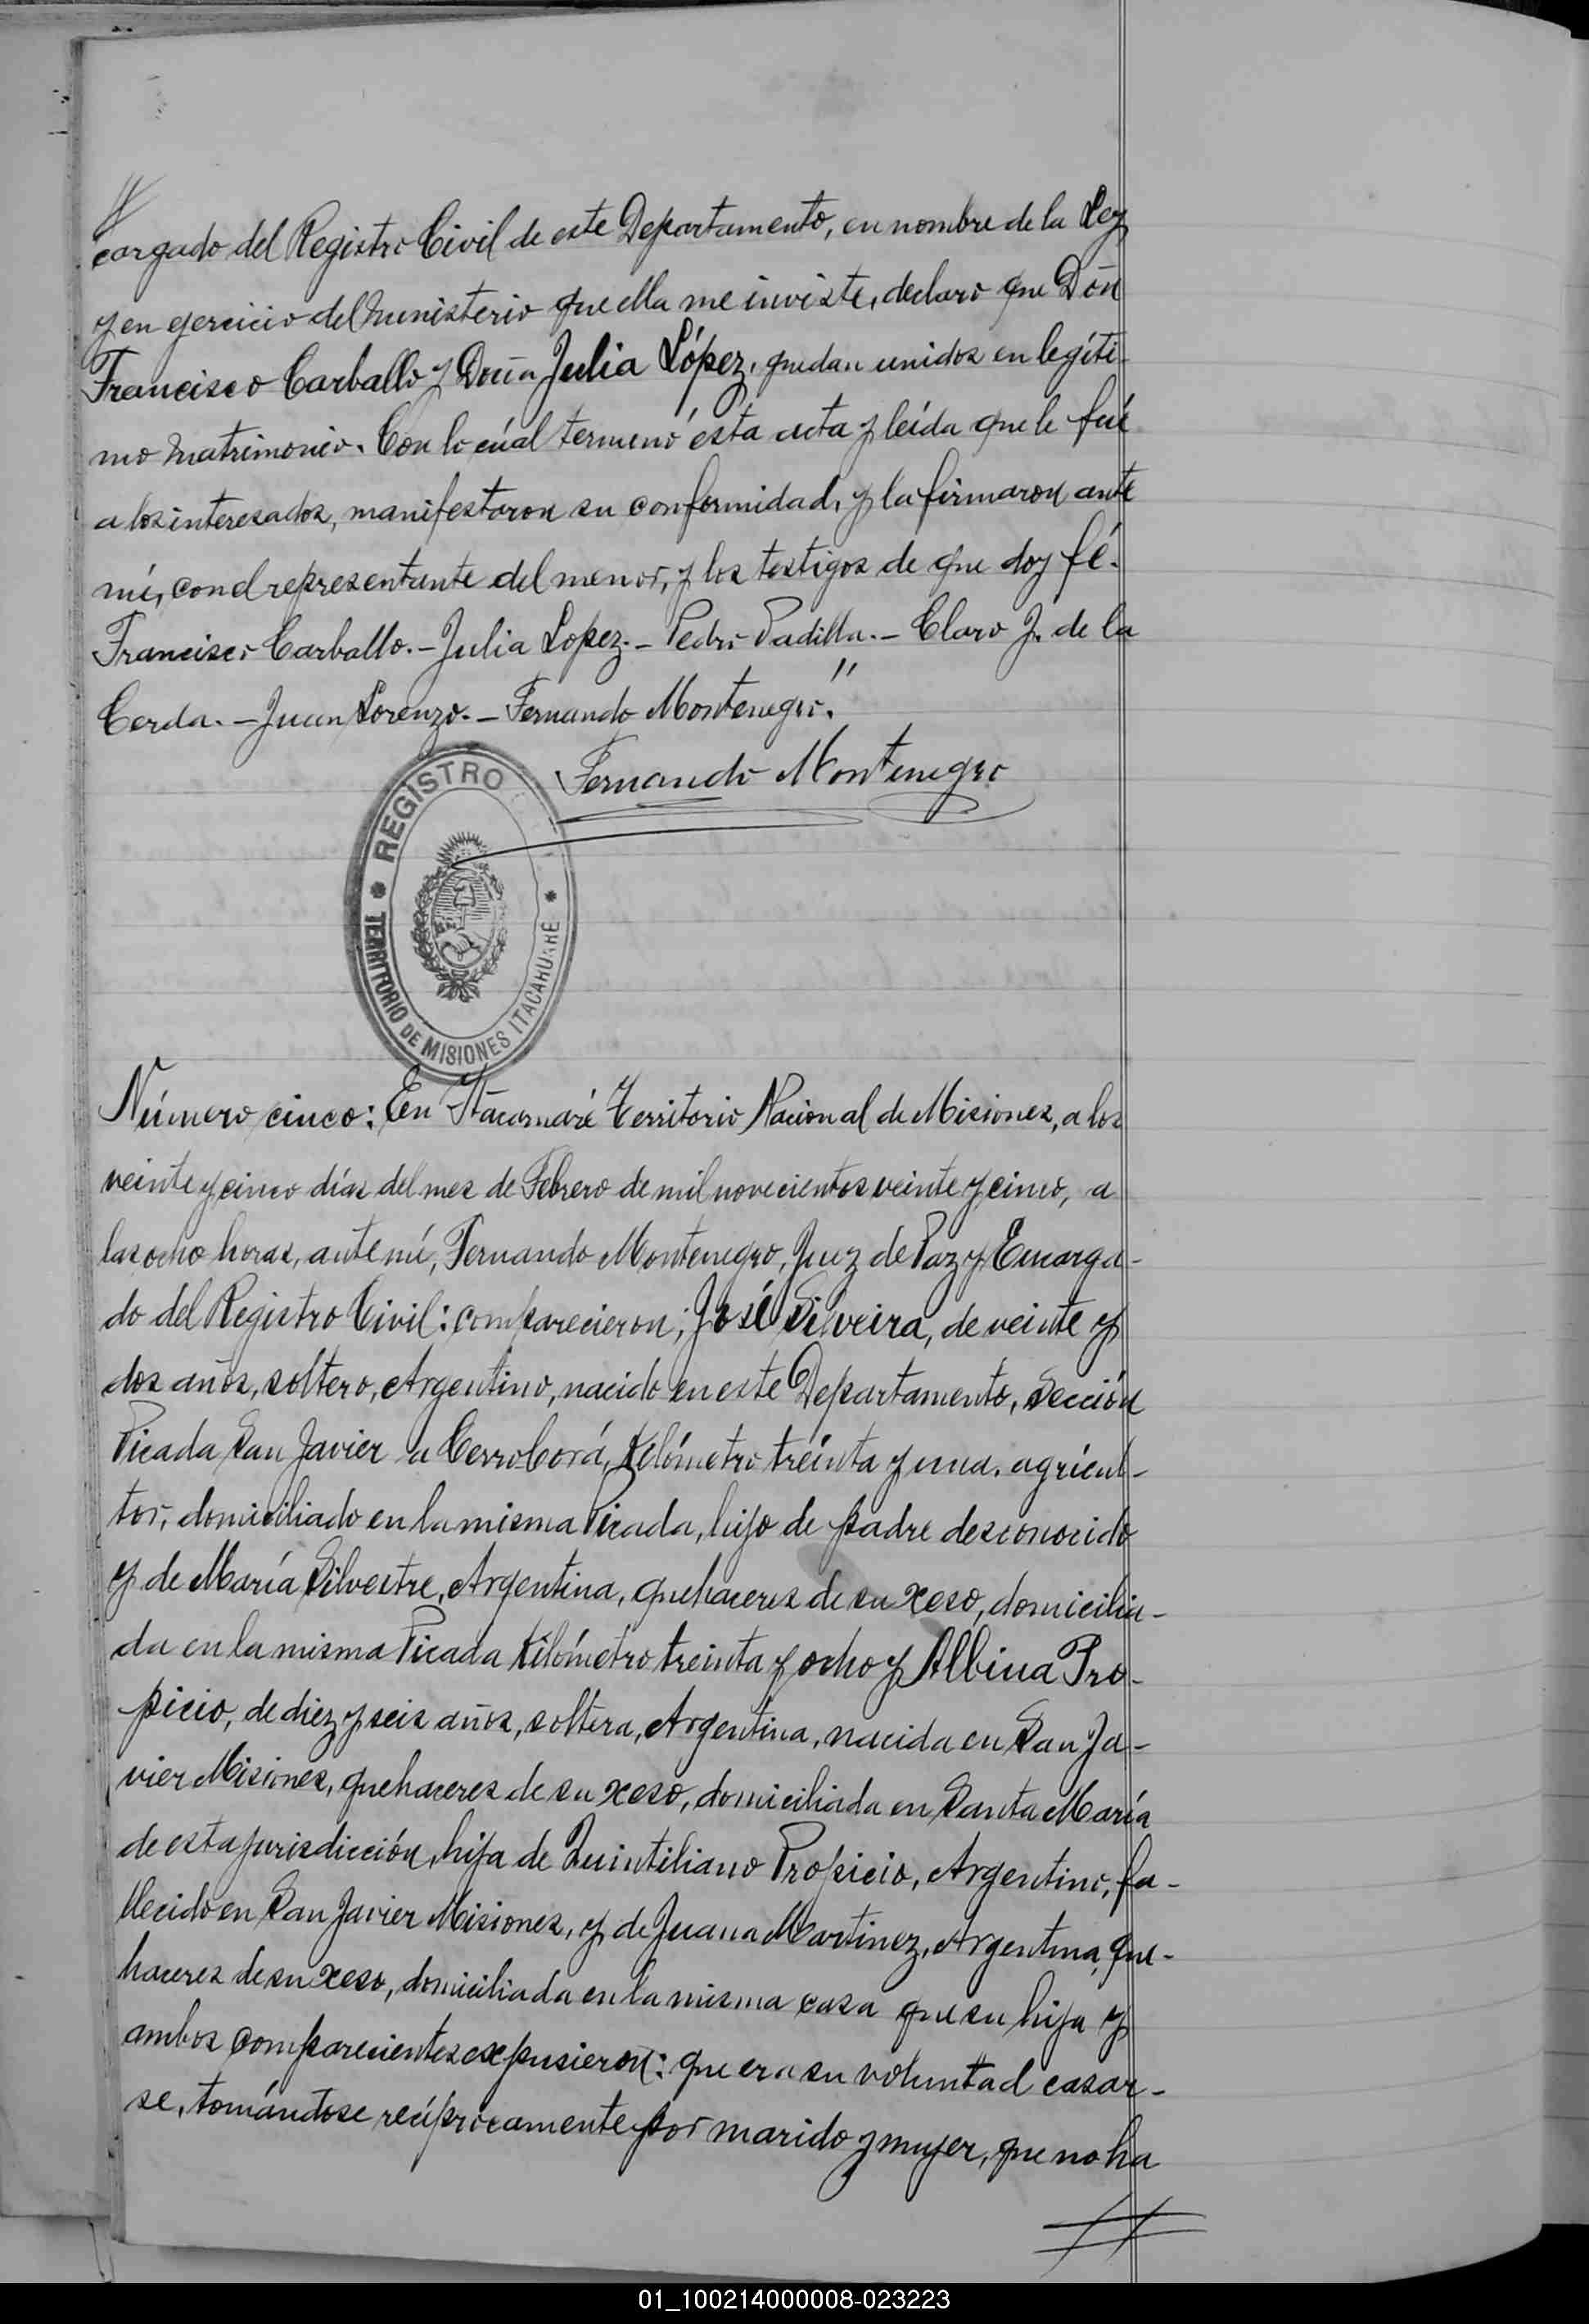 cargado del Registro Civil de este Departamento, en nombre de la Ley
y en ejercicio del ministerio que ella me inviste, declaro que Don
Francisco Carballo y Doña Julia López, quedan unidos en legíti-
mo matrimonio. Con lo cúal terminó ésta acta y leída que le fué
a los interesados, manifestaron su conformidad, y la firmaron ante
mí, con el representante del menor, y los testigos de que doy fé.
Francisco Carballo.- Julia Lopez.- Pedro Padilla.- Claro J. de la
Cerda.- Juan Lorenzo.- Fernando Montenegro."
Fernando Montenegro
REGISTRO
TERRITORIO DE MISIONES ITACAHUARÉ
Número cinco: En Itacaruaré Territorio Nacional de Misiones, a los
veinte y cinco días del mes de Febrero de mil novecientos veinte y cinco, a
las ocho horas, ante mí, Fernando Montenegro, Juez de Paz y Encarga-
do del Registro Civil: comparecieron; José Silveira, de veinte y
dos años, soltero, Argentino, nacido en este Departamento, Sección
Picada San Javier a Cerro Corá, Kilómetro treinta y una. agricul-
tor, domiciliado en la misma Picada, hijo de padre desconocido
y de María Silvestre, Argentina, quehaceres de su xeso, domicilia-
da en la misma Picada Kilómetro treinta y ocho y Albina Pro-
picio, de diez y seis años, soltera, Argentina, nacida en San Ja-
vier Misiones, quehaceres de su xeso, domiciliada en Santa María
de esta jurisdicción, hija de Quintiliano Propicio, Argentino, fa-
llecido en San Javier Misiones, y de Juana Martinez, Argentina, que-
haceres de su xeso, domiciliada en la misma casa que su hija y
ambos comparecientes expusieron: que era su voluntad casar-
se, tomándose recíprocamente por marido y mujer, que no ha
01_100214000008-023223